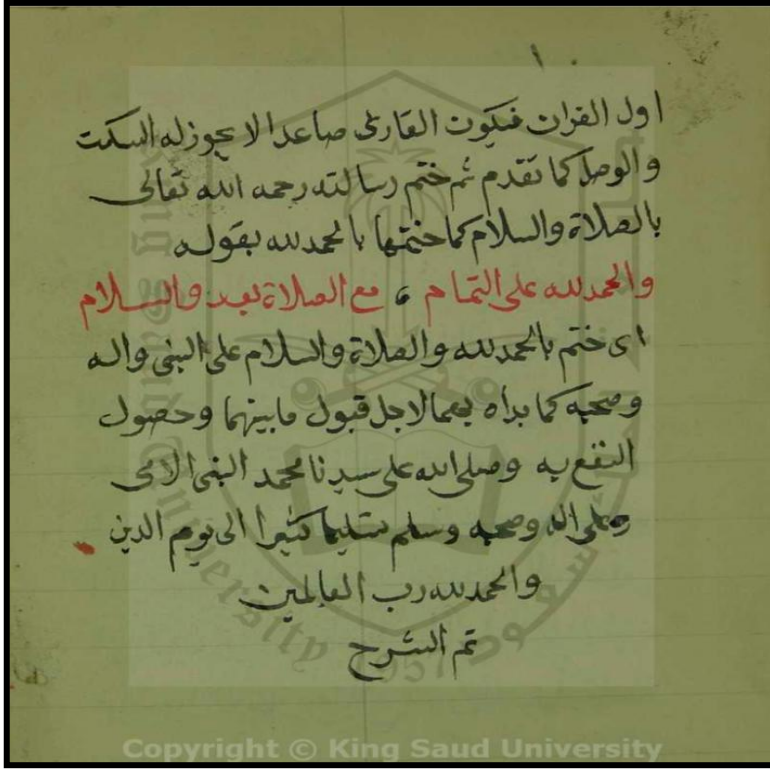 اول القران فيكون القارئ صاعدا لا يجوز له السكت
والوصل كما تقدم ثم ختم رسالته رحمه الله تعالى
بالصلاة والسلام كما ختمها بالحمد لله بقوله
والحمد لله على التمام ، مع الصلاة بعد والسلام
اى ختم بالحمد لله والصلاة والسلام على النبى واله
وصحبه كما بدأه بهما لاجل قبول ما بينهما وحصول
النفع به وصلى الله على سيدنا محمد النبى الامى
وعلى اله وصحبه وسلم تسليما كثيرا الى يوم الدين
والحمد لله رب العالمين
تم الشرح
Copyright © King Saud University